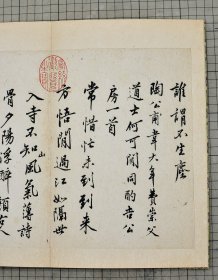 誰謂不生塵
陶公甫韋大年費崇父
道士何可閱同酌告公
房一首
常惜忙未到到来
方悟閒過江如隔世
入寺不知山風氣薄詩
骨夕陽浮醉顏